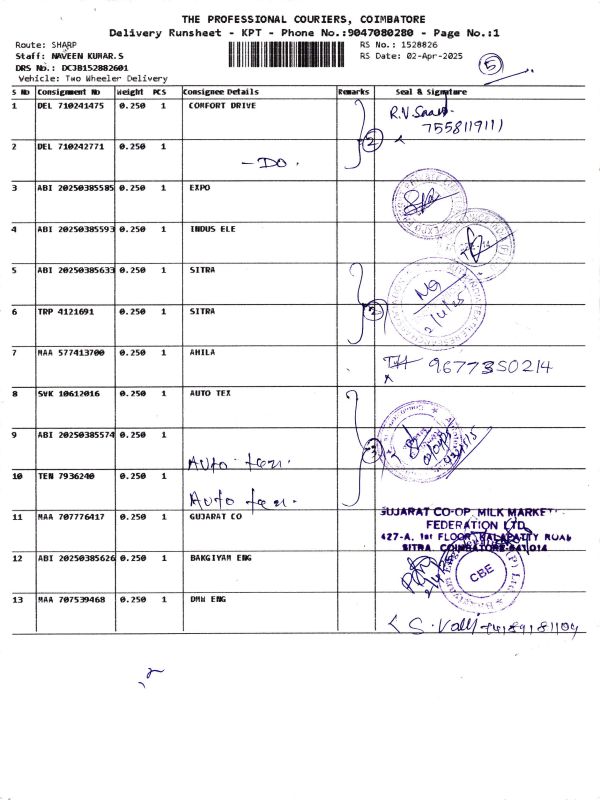 THE PROFESSIONAL COURIERS, COIMBATORE
Delivery Runsheet - KPT - Phone No.:9047080280 - Page No.:1
Route: SHARP RS No.: 1528826
Staff: NAVEEN KUMAR.S RS Date: 02-Apr-2025
DRS No.: DCJB152882601
Vehicle: Two Wheeler Delivery
5
S No Consignment No Weight PCS Consignee Details Remarks Seal & Signature
1 DEL 710241475 0.250 1 COMFORT DRIVE R.V.
7558119111
2 DEL 710242771 0.250 1 -DO. 2
3 ABI 20250385585 0.250 1 EXPO
4 ABI 20250385593 0.250 1 INDUS ELE
5 ABI 20250385633 0.250 1 SITRA
2/4/25
6 TRP 4121691 0.250 1 SITRA 2
7 MAA 577413700 0.250 1 AHILA 9677350214
8 SVK 10612016 0.250 1 AUTO TEX
9 ABI 20250385574 0.250 1 Auto tex. 3
10 TEN 7936240 0.250 1 Auto tex.
11 MAA 707776417 0.250 1 GUJARAT CO
GUJARAT CO-OP. MILK MARKET
FEDERATION LTD.
427-A, 1st FLOOR, KALAPATTY ROAD
SITRA, COIMBATORE-641 014
12 ABI 20250385626 0.250 1 BAKGIYAM ENG
CBE
13 MAA 707539468 0.250 1 DMW ENG
S. Valli